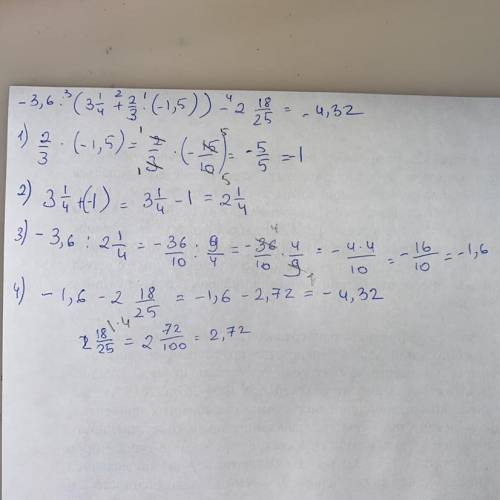 -3,6 :³ (3 1/4 +² 2/3 ·¹ (-1,5)) -⁴ 2 18/25 = -4,32
1) 2/3 · (-1,5) = 2/3 · (-15/10) = -5/5 = -1
2) 3 1/4 + (-1) = 3 1/4 - 1 = 2 1/4
3) -3,6 : 2 1/4 = -36/10 : 9/4 = -36/10 · 4/9 = -4·4/10 = -16/10 = -1,6
4) -1,6 - 2 18/25 = -1,6 - 2,72 = -4,32
2 18/25 \·4 = 2 72/100 = 2,72